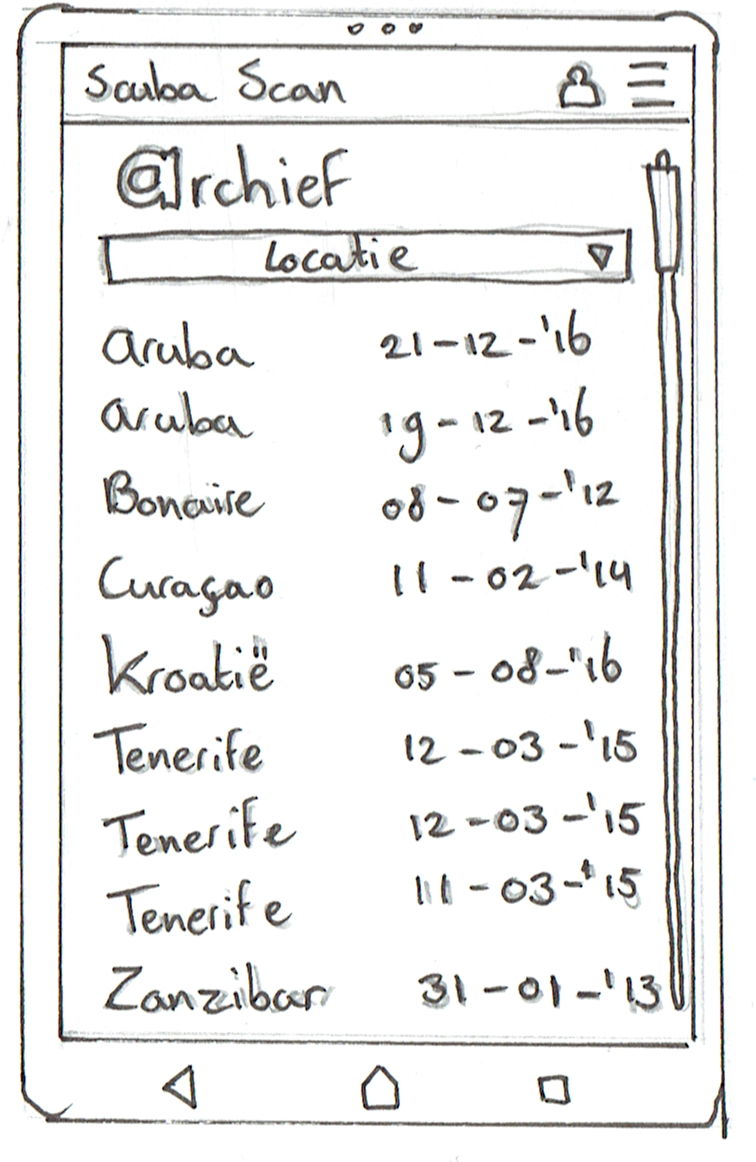 Scuba Scan
@rchief
Locatie
Aruba 21-12-'16
Aruba 19-12-'16
Bonaire 08-07-'12
Curaçao 11-02-'14
Kroatië 05-08-'16
Tenerife 12-03-'15
Tenerife 12-03-'15
Tenerife 11-03-'15
Zanzibar 31-01-'13